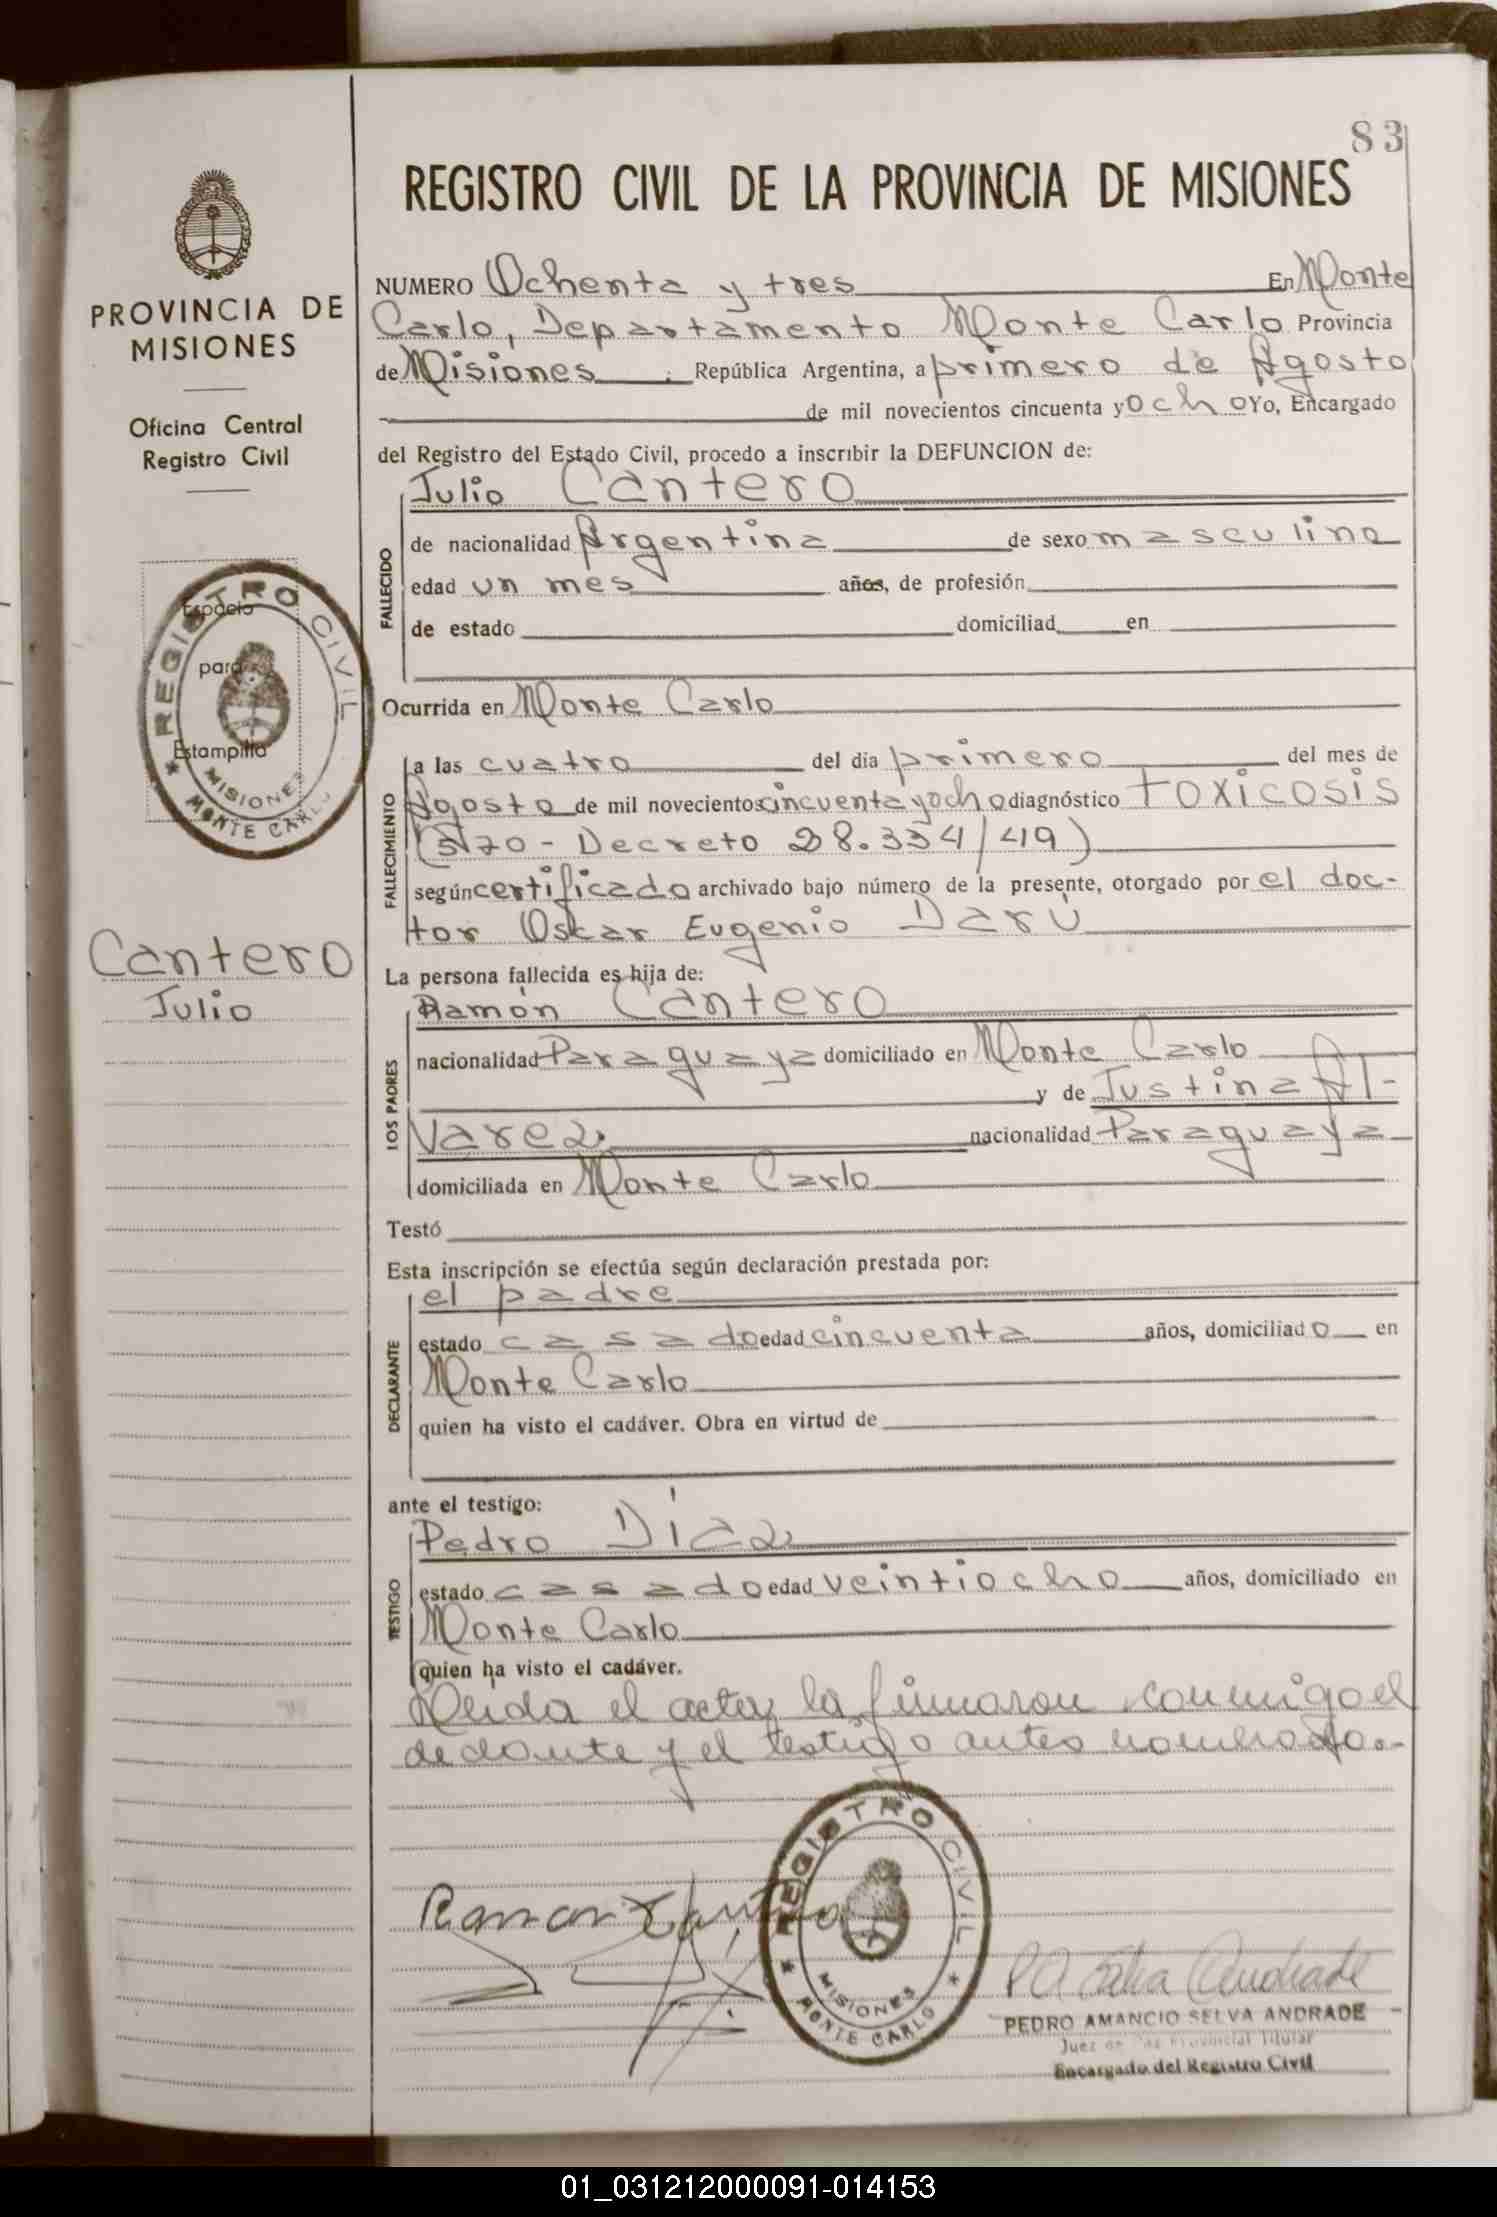 83
REGISTRO CIVIL DE LA PROVINCIA DE MISIONES
PROVINCIA DE
MISIONES
Oficina Central
Registro Civil
Espacio
para
Estampilla
REGISTRO CIVIL
MISIONES
MONTE CARLO
Cantero
Julio
NUMERO Ochenta y tres En Monte
Carlo, Departamento Monte Carlo Provincia
de Misiones República Argentina, a primero de Agosto
de mil novecientos cincuenta y ocho Yo, Encargado
del Registro del Estado Civil, procedo a inscribir la DEFUNCION de:
Julio Cantero
FALLECIDO
de nacionalidad Argentina de sexo masculino
edad un mes años, de profesión
de estado domiciliad en
Ocurrida en Monte Carlo
FALLECIMIENTO
a las cuatro del día primero del mes de
Agosto de mil novecientos cincuenta y ocho diagnóstico toxicosis
(570 - Decreto 28.334/49)
según certificado archivado bajo número de la presente, otorgado por el doc-
tor Oskar Eugenio Darú
La persona fallecida es hija de:
Ramón Cantero
LOS PADRES
nacionalidad Paraguaya domiciliado en Monte Carlo
y de Justina Al-
varez nacionalidad Paraguaya
domiciliada en Monte Carlo
Testó
Esta inscripción se efectúa según declaración prestada por:
el padre
DECLARANTE
estado casado edad cincuenta años, domiciliado en
Monte Carlo
quien ha visto el cadáver. Obra en virtud de
ante el testigo:
Pedro Díaz
TESTIGO
estado casado edad veintiocho años, domiciliado en
Monte Carlo
quien ha visto el cadáver.
Leída el acta, la firmaron conmigo el
declarante y el testigo antes nombrado.-
Ramon Cantero
REGISTRO CIVIL
MISIONES
MONTE CARLO
P A Selva Andrade
PEDRO AMANCIO SELVA ANDRADE
Juez de Paz Provincial Titular
Encargado del Registro Civil
01_031212000091-014153